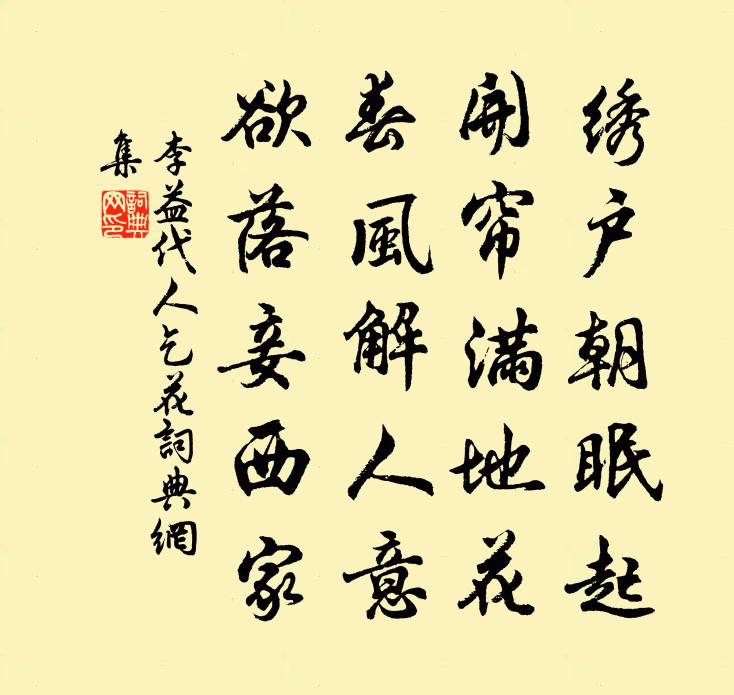 绣户朝眠起
開帘满地花
春風解人意
欲落妾西家
李益代人乞花詞典網
集
詞典网印